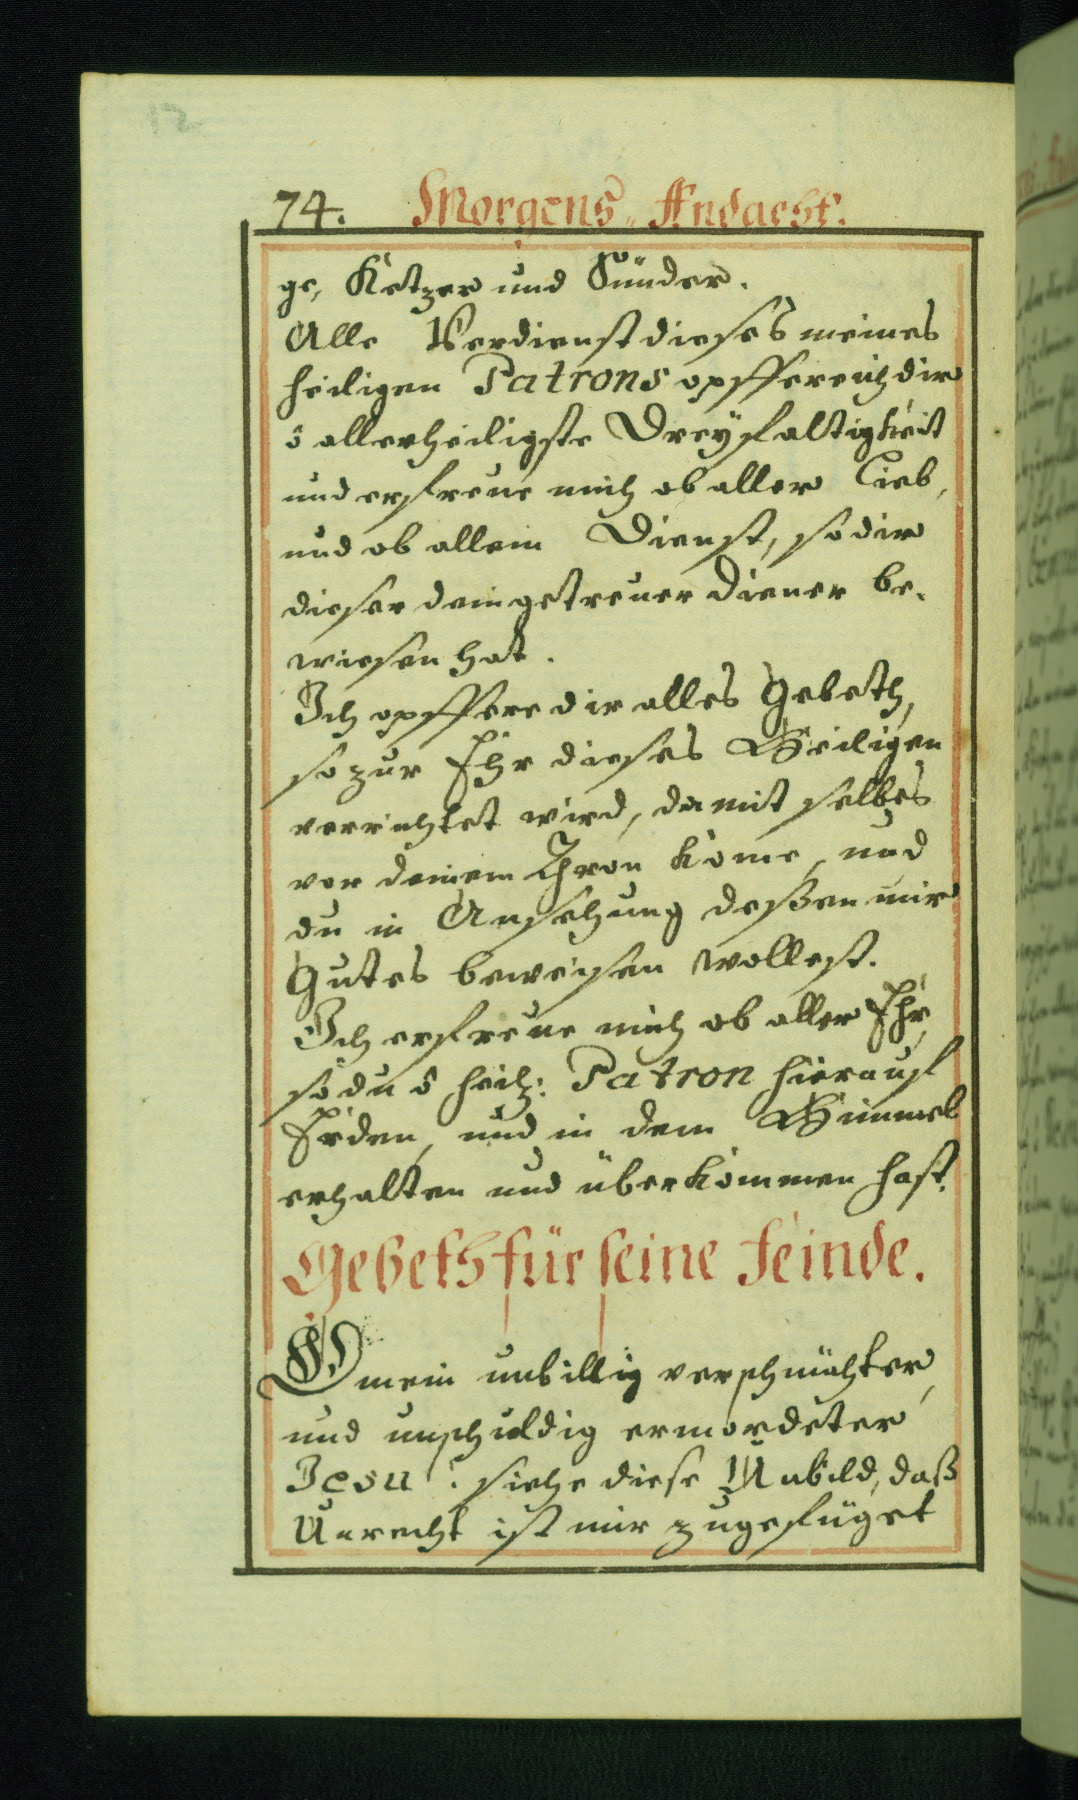 74. Morgens Andacht.
ge, Ketzer und Sünder.
Alle Verdienst dieses meines
heiligen Patrons opffere ich dir
ô allerheiligste Dreÿfaltigkeit
und erfreüe mich ob aller Lieb,
und ob allem Dienst, so dir
dieser dein getreuer Diener be-
wiesen hat.
Ich opffere dir alles Gebeth,
so zur Ehr dieses Heiligen
verrichtet wird, damit selbes
vor deinem Thron kome, und
du in Ansehung deßen mir
Gutes beweisen wollest.
Ich erfreüe mich ob aller Ehr,
so du ô heilg: Patron hier auf
Erden, und in dem Himmel
erhalten und überkommen hast.
Gebeth für seine Feinde.
O mein unbillig verschmähter,
und unschuldig ermordeter
Jesu! siehe diese Unbild, daß
Unrecht ist mir zugefüget